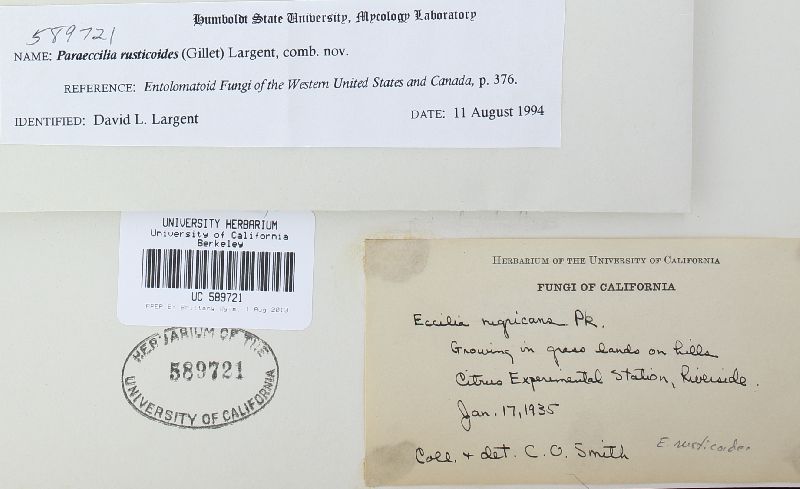 Humboldt State University, Mycology Laboratory
589721
NAME: Paraeccilia rusticoides (Gillet) Largent, comb. nov.
REFERENCE: Entolomatoid Fungi of the Western United States and Canada, p. 376.
IDENTIFIED: David L. Largent
DATE: 11 August 1994
UNIVERSITY HERBARIUM
University of California
Berkeley
UC 589721
HERBARIUM OF THE
589721
UNIVERSITY OF CALIFORNIA
HERBARIUM OF THE UNIVERSITY OF CALIFORNIA
FUNGI OF CALIFORNIA
Eccilia nigricans Pk.
Growing in grass lands on hills
Citrus Experimental Station, Riverside.
Jan. 17, 1935
Coll. + det. C. O. Smith
E. rusticoides